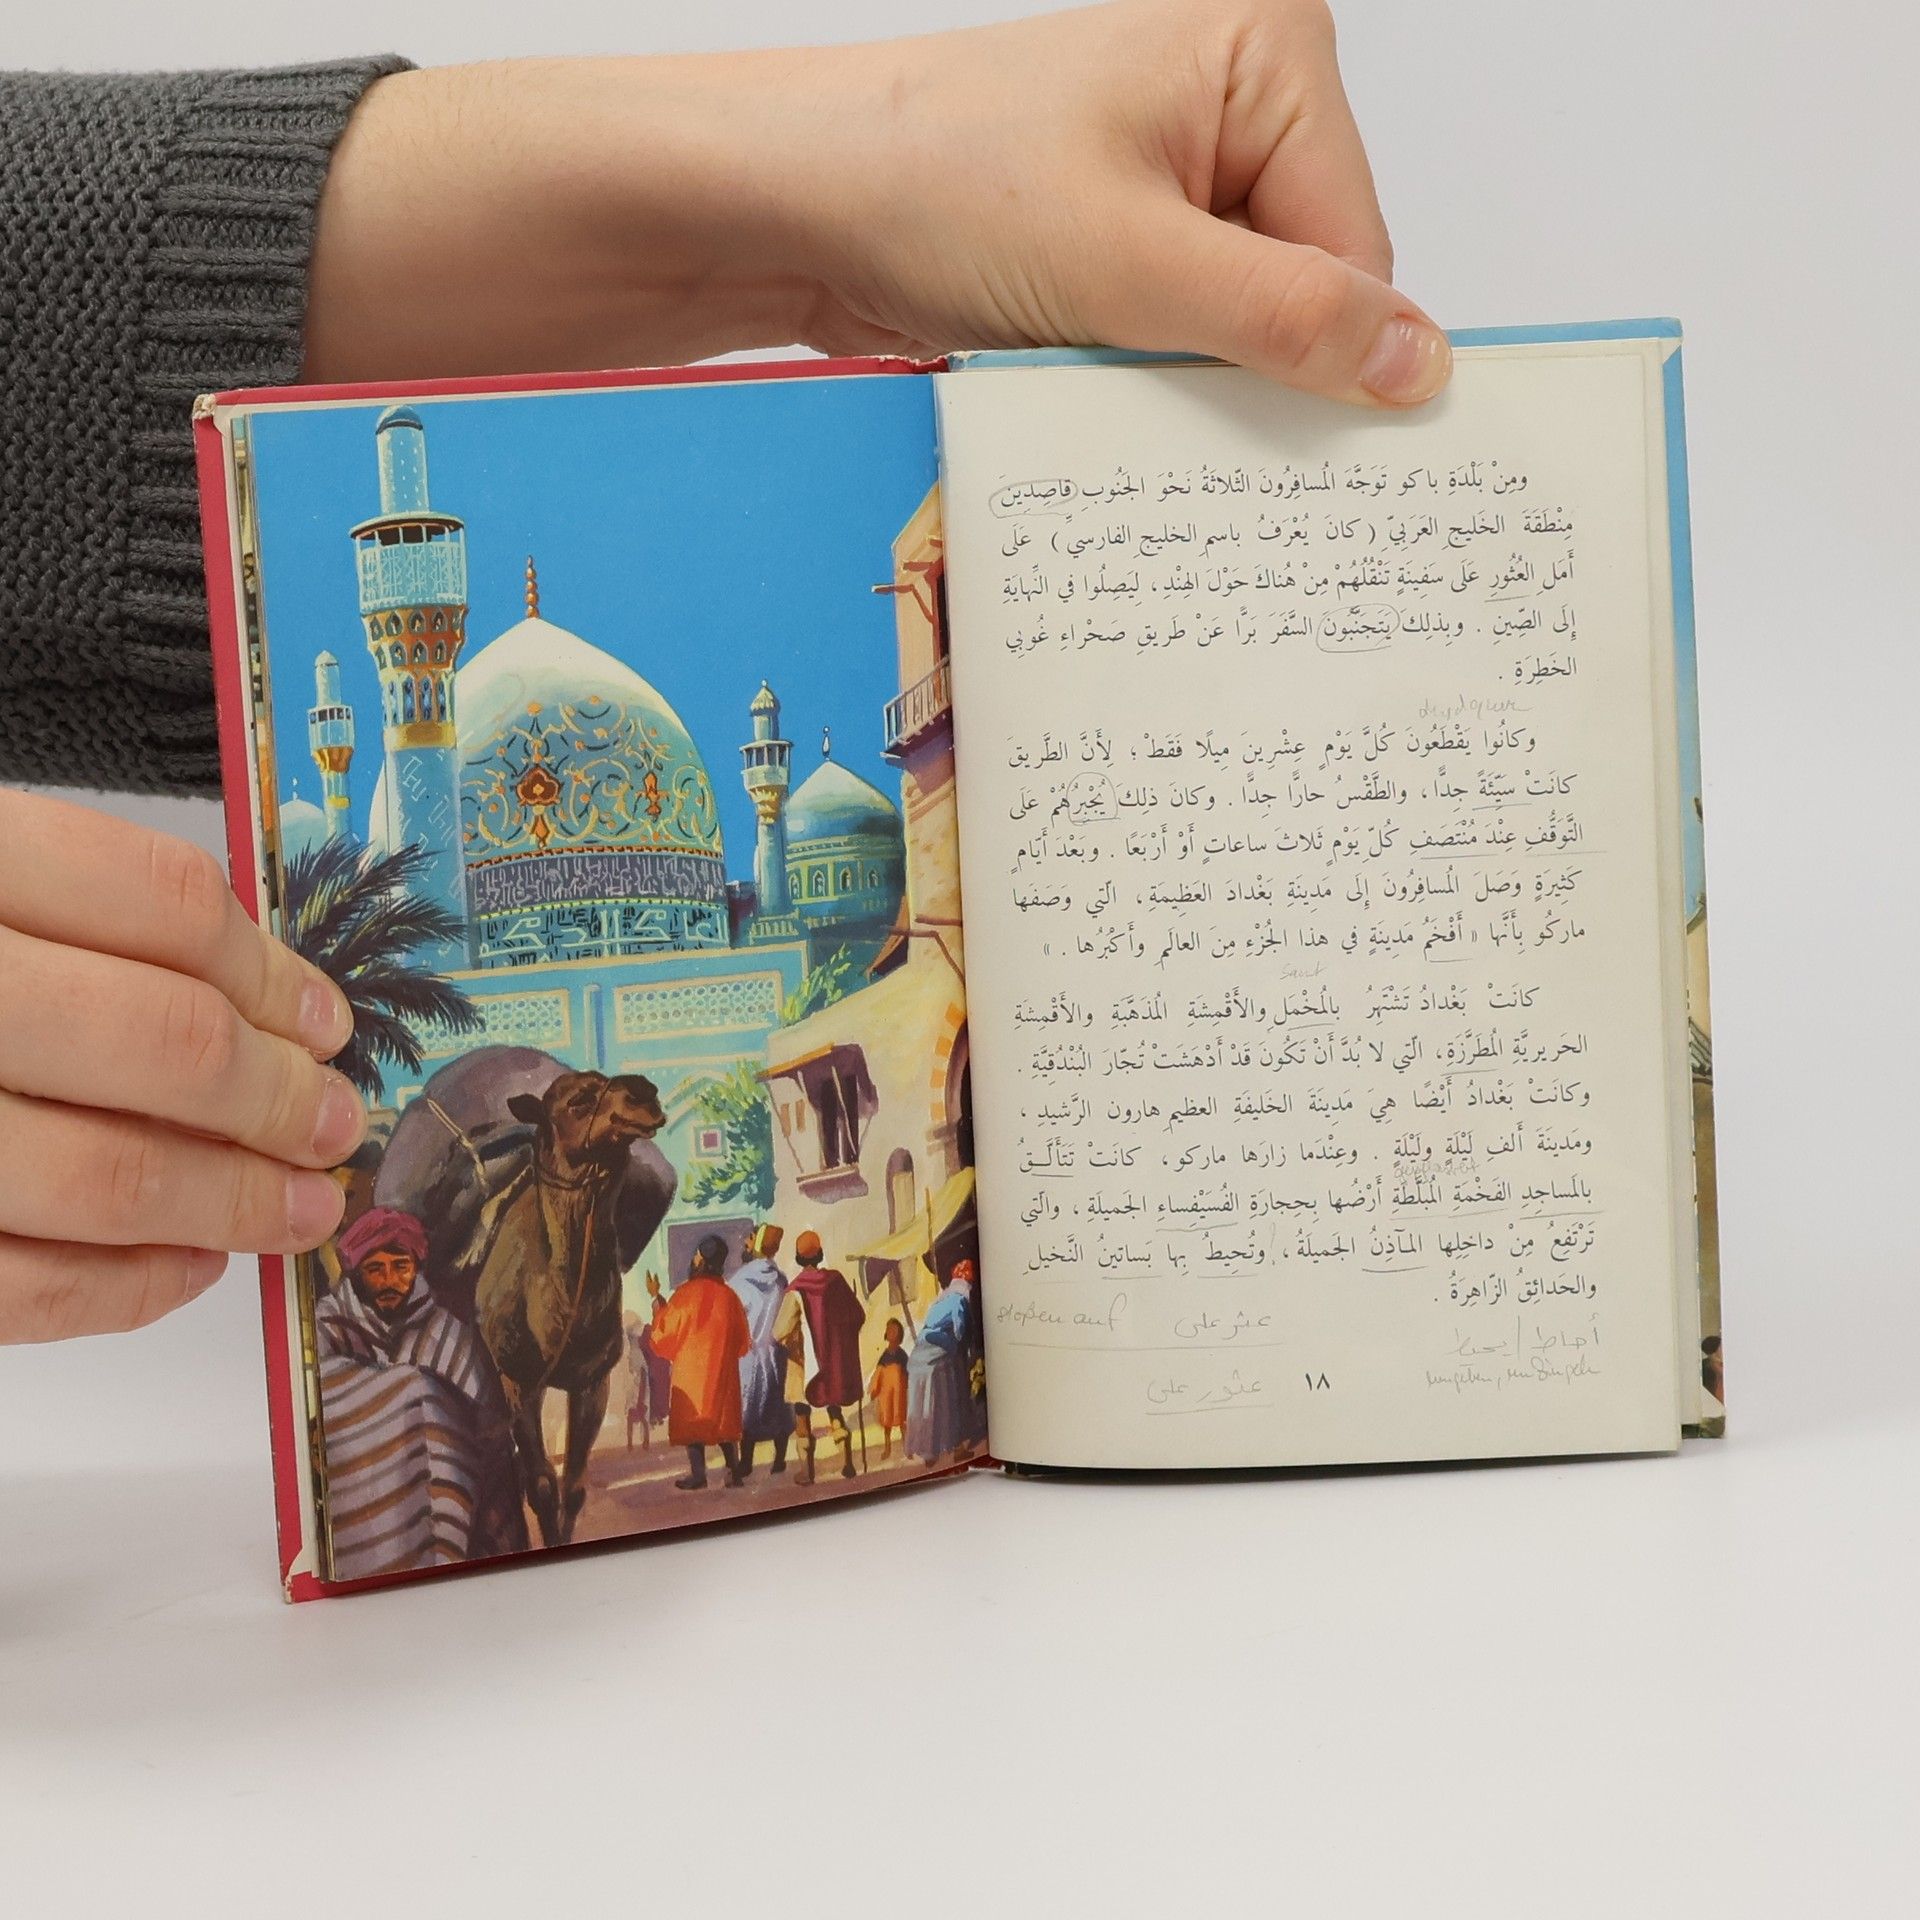 ومِنْ بَلْدَةِ باكو تَوَجَّهَ المُسافِرُونَ الثّلاثَةُ نَحْوَ الجَنُوبِ قاصِدِينَ
مِنْطَقَةَ الخَليجِ العَرَبِيِّ ( كانَ يُعْرَفُ باسمِ الخليجِ الفارسيِّ ) عَلَى
أَمَلِ العُثُورِ عَلَى سَفِينَةٍ تَنْقُلُهُمْ مِنْ هُناكَ حَوْلَ الهِنْدِ ، لِيَصِلُوا في النِّهايَةِ
إِلَى الصِّينِ . وبِذلِكَ يَتَجَنَّبُونَ السَّفَرَ بَرًّا عَنْ طَريقِ صَحْراءِ غُوبِي
الخَطِرَةِ .
وكانُوا يَقْطَعُونَ كُلَّ يَوْمٍ عِشْرِينَ مِيلًا فَقَطْ ؛ لِأَنَّ الطَّريقَ
كانَتْ سَيِّئَةً جِدًّا ، والطَّقْسُ حارًّا جِدًّا . وكانَ ذلِكَ يُجْبِرُهُمْ عَلَى
التَّوَقُّفِ عِنْدَ مُنْتَصَفِ كُلِّ يَوْمٍ ثَلاثَ ساعاتٍ أَوْ أَرْبَعًا . وبَعْدَ أَيّامٍ
كَثِيرَةٍ وَصَلَ المُسافِرُونَ إِلَى مَدِينَةِ بَغْدادَ العَظِيمَةِ ، الّتي وَصَفَها
ماركُو بِأَنَّها « أَفْخَمُ مَدِينَةٍ في هذا الجُزْءِ مِنَ العالَمِ وأَكْبَرُها . »
Samt
كانَتْ بَغْدادُ تَشْتَهِرُ بالمُخْمَلِ والأَقْمِشَةِ المُذَهَّبَةِ والأَقْمِشَةِ
الحَريريَّةِ المُطَرَّزَةِ ، الّتي لا بُدَّ أَنْ تَكُونَ قَدْ أَدْهَشَتْ تُجّارَ البُنْدُقِيَّةِ .
وكانَتْ بَغْدادُ أَيْضًا هِيَ مَدِينَةَ الخَليفَةِ العظيمِ هارون الرَّشيدِ ،
ومَدينَةَ أَلفِ لَيْلَةٍ ولَيْلَةٍ . وعِنْدَما زارَها ماركو ، كانَتْ تَتَأَلَّـقُ
بالمَساجِدِ الفَخْمَةِ المُبَلَّطَةِ أَرْضُها بِحِجارَةِ الفُسَيْفِساءِ الجَميلَةِ ، والّتي
تَرْتَفِعُ مِنْ داخِلِها المَـآذِنُ الجَميلَةُ ، وتُحِيطُ بِها بَساتينُ النَّخيلِ
والحَدائِقُ الزّاهِرَةُ .
عثر على stoßen auf
أحاط / يحيط
umgeben, umzingeln
عثور على
١٨